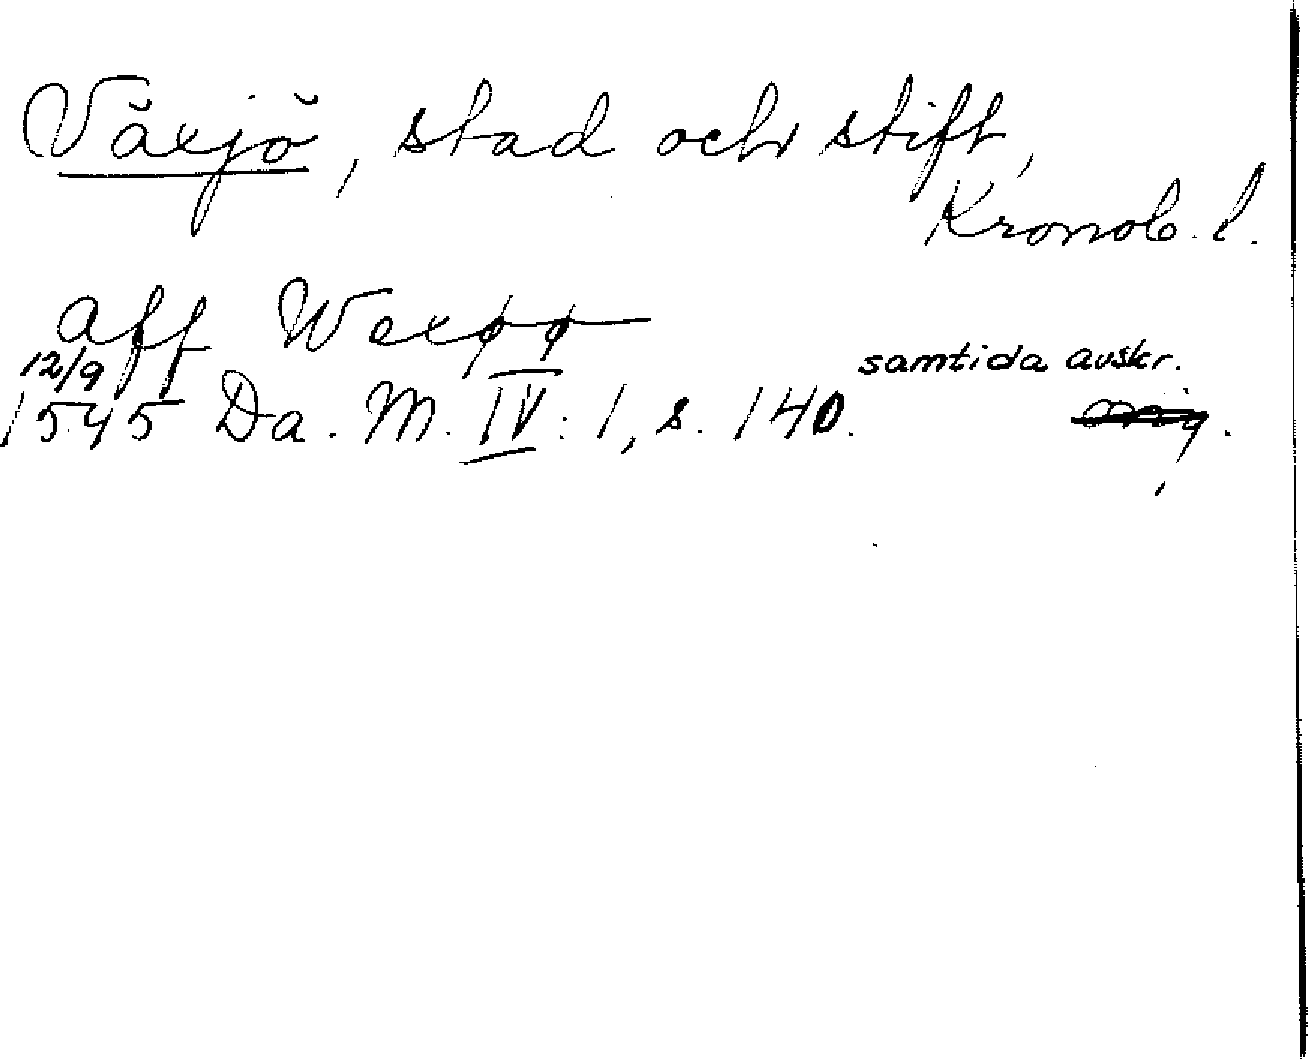 Växjö, stad och stift,
Kronob. l.
aff Wexøø
12/9 samtida avskr.
1545 Da. M. IV: 1, s. 140.